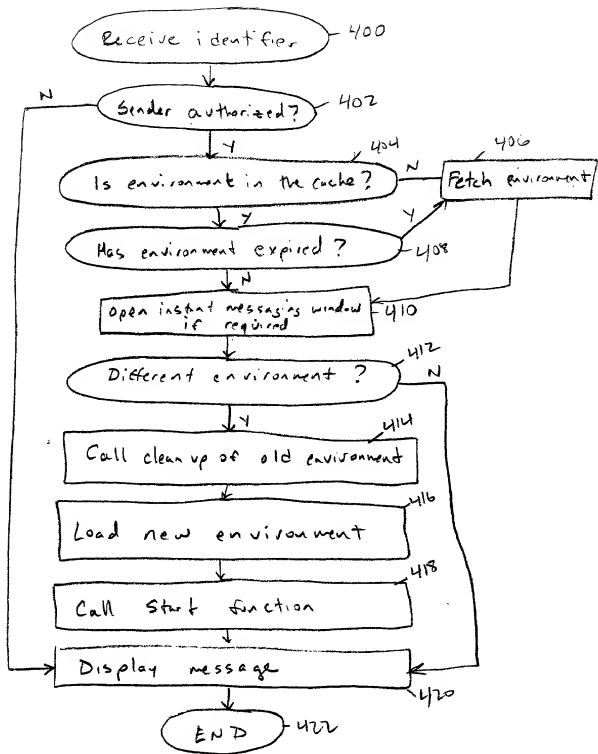 Receive identifier
400
N
Sender authorized?
402
Y
404
406
Is environment in the cache?
N
Fetch environment
Y
Y
Has environment expired?
408
N
Open instant messaging window
if required
410
412
Different environment?
N
Y
414
Call cleanup of old environment
416
Load new environment
418
Call Start function
Display message
420
END
422